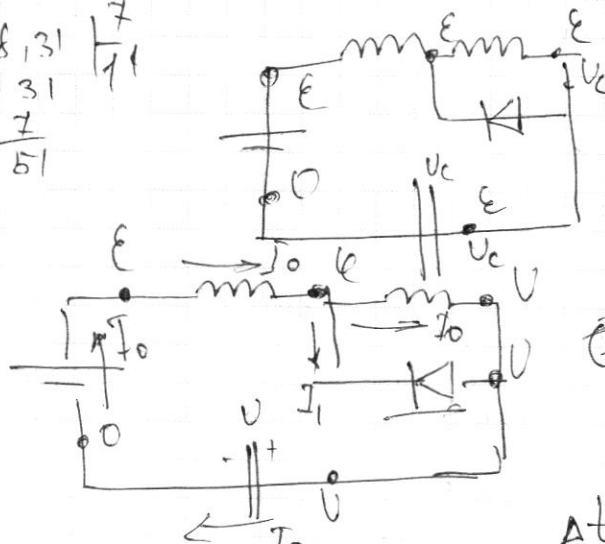 8,31 | 7
31 11
7
51
ε ε
ε U_C
0 U_C ε
U_C
ε I_0 φ U
I_0 I_0
U
I_1
0 U
- +
U
I_0
Δt